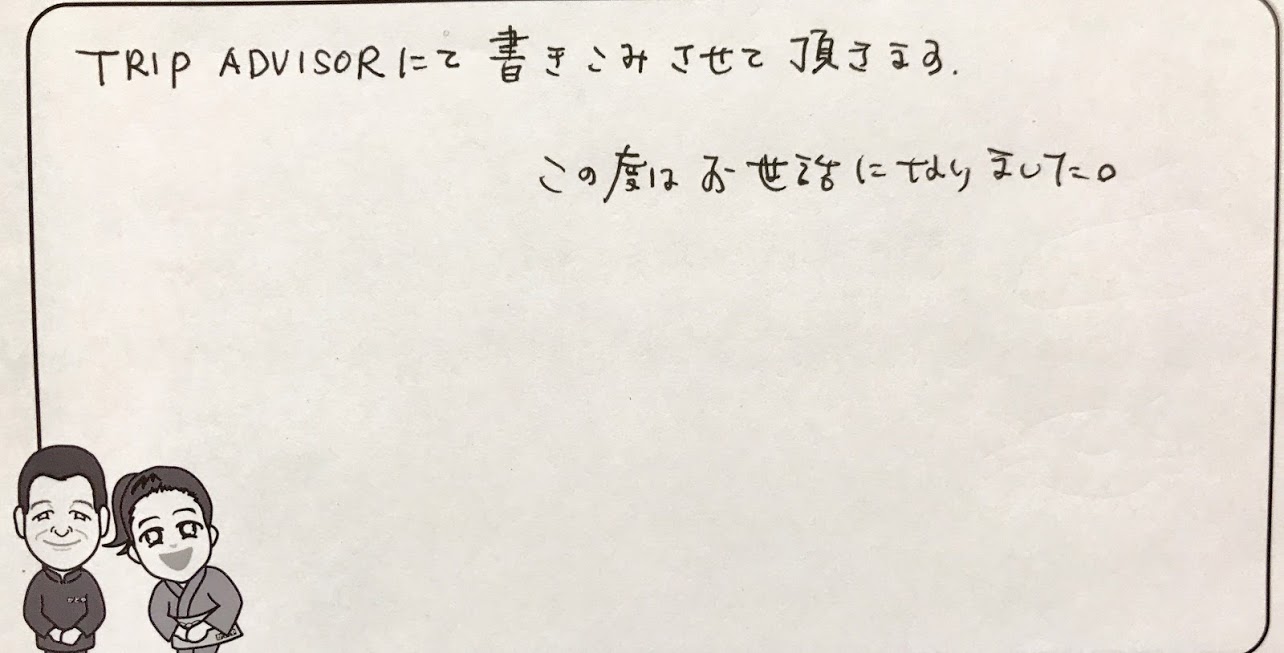 TRIP ADVISORにて書きこみさせて頂きます.
この度はお世話になりました。